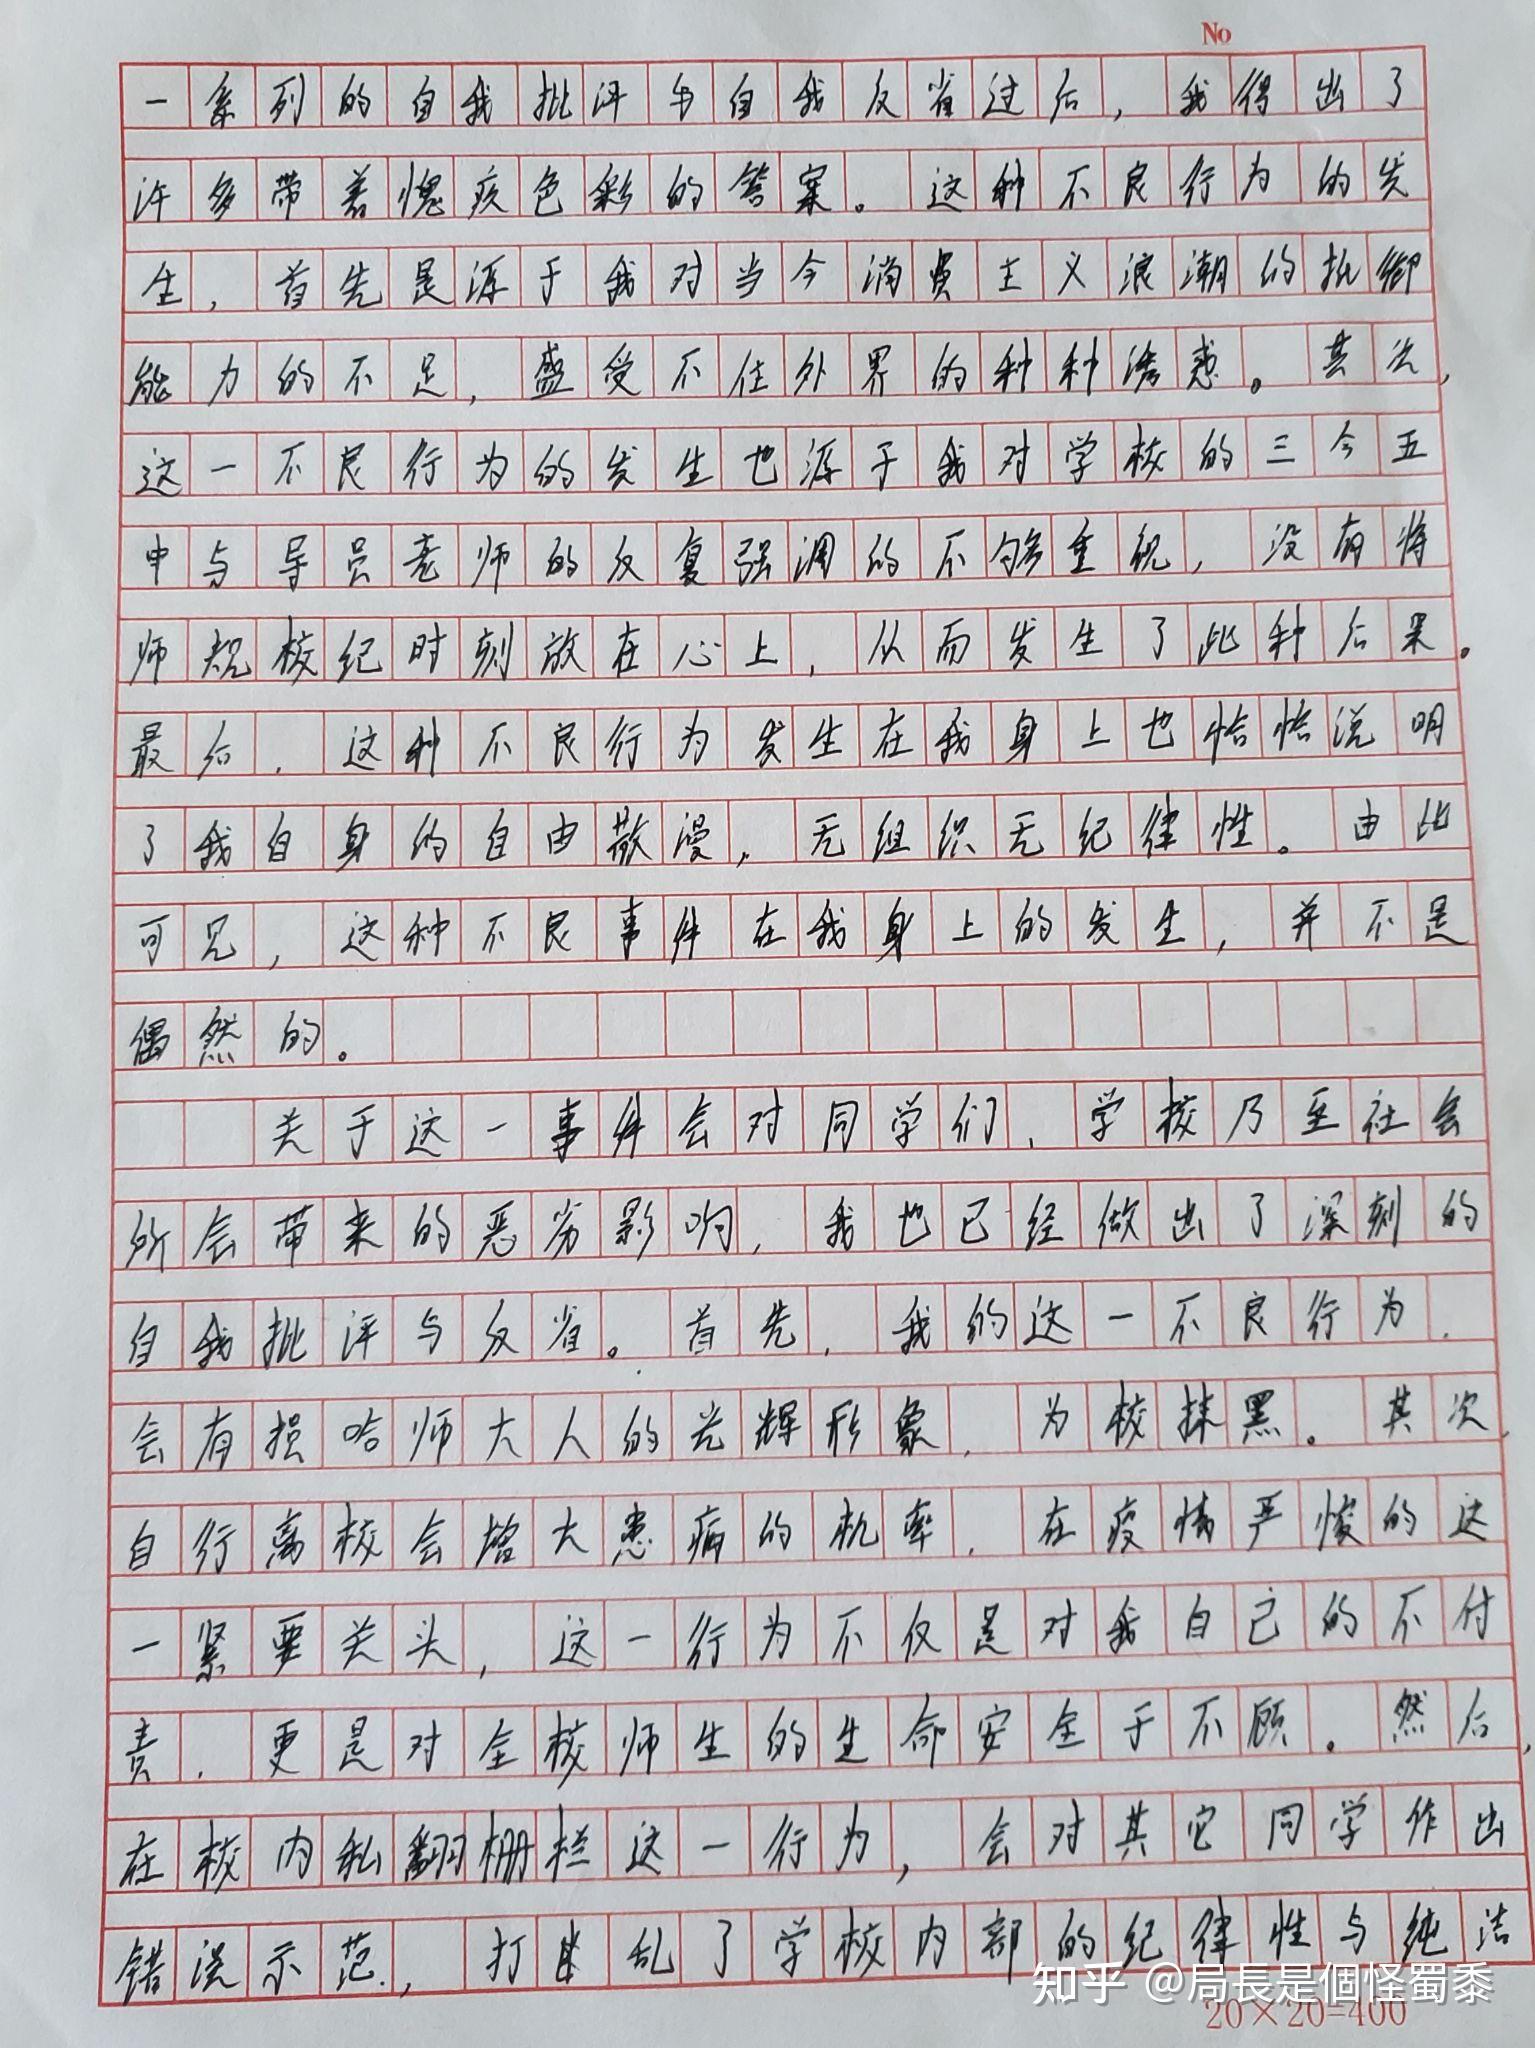 No
一系列的自我批评与自我反省过后，我得出了
许多带着愧疚色彩的答案。这种不良行为的发
生，首先是源于我对当今消费主义浪潮的抵御
能力的不足，盛受不住外界的种种诱惑。其次，
这一不良行为的发生也源于我对学校的三令五
申与导员老师的反复强调的不够重视，没有将
师规校纪时刻放在心上，从而发生了此种后果。
最后，这种不良行为发生在我身上也恰恰说明
了我自身的自由散漫，无组织无纪律性。由此
可见，这种不良事件在我身上的发生，并不是
偶然的。
关于这一事件会对同学们，学校乃至社会
所会带来的恶劣影响，我也已经做出了深刻的
自我批评与反省。首先，我的这一不良行为，
会有损哈师大人的光辉形象，为校抹黑。其次，
自行离校会增大患病的机率，在疫情严峻的这
一紧要关头，这一行为不仅是对我自己的不付
责，更是对全校师生的生命安全于不顾。然后，
在校内私翻栅栏这一行为，会对其它同学作出
错误示范，打乱了学校内部的纪律性与纯洁
知乎 @局長是個怪蜀黍
20×20=400